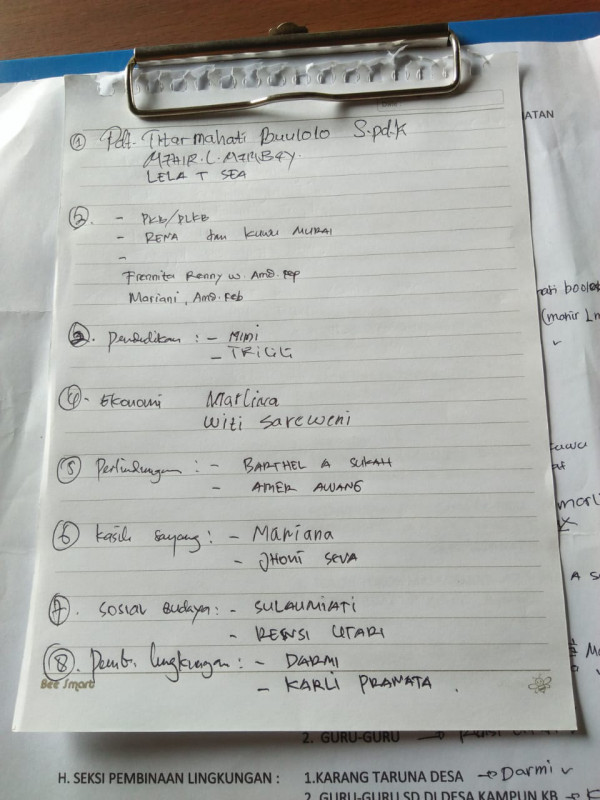 ① Pdt. Titarmahati Buulolo S.pd.k
LELA T SEA
2. - PKB/PLKB
- RENA dan kuwu MURAI
-
Frennita Renny w. Amd. Kep
Mariani, Amd. Keb
3. Pendidikan : - MIMI
④ - EKONOMI Marlina
Witi Sareweni
⑤ Perlindungan : - BARTHEL A SUKAH
- AMER AWANG
⑥ Kasih sayang : - Mariana
- JHONI SEVA
7. SOSIAL Budaya : - SULAUMIATI
- RENSI UTARI
⑧. Pemb. lingkungan : - DARMI
- KARLI PRANATA .
Bee Smart
2. GURU-GURU
H. SEKSI PEMBINAAN LINGKUNGAN : 1.KARANG TARUNA DESA → Darmi ✓
2 GURU-GURU SD DI DESA KAMPUN KB → K